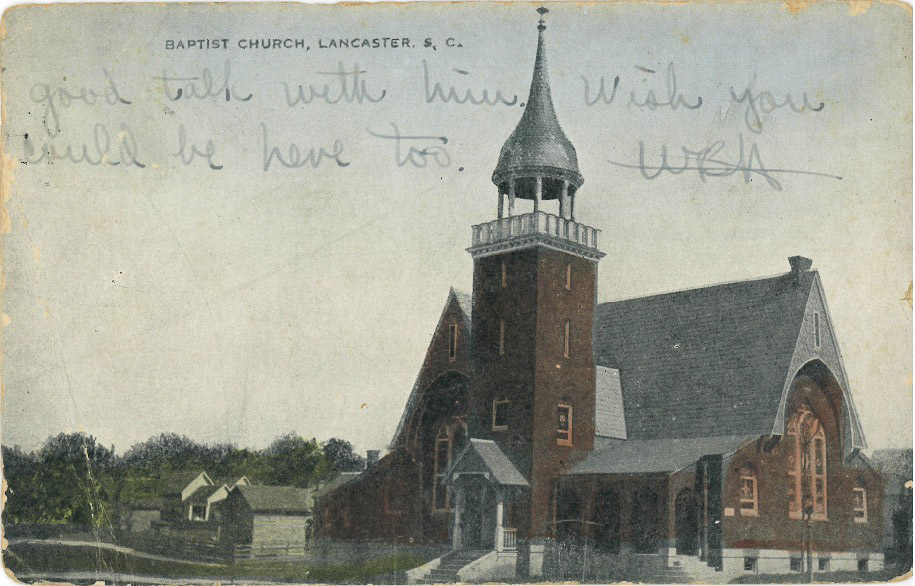 BAPTIST CHURCH, LANCASTER, S. C.
good talk with him. Wish you
could be here too. WBH